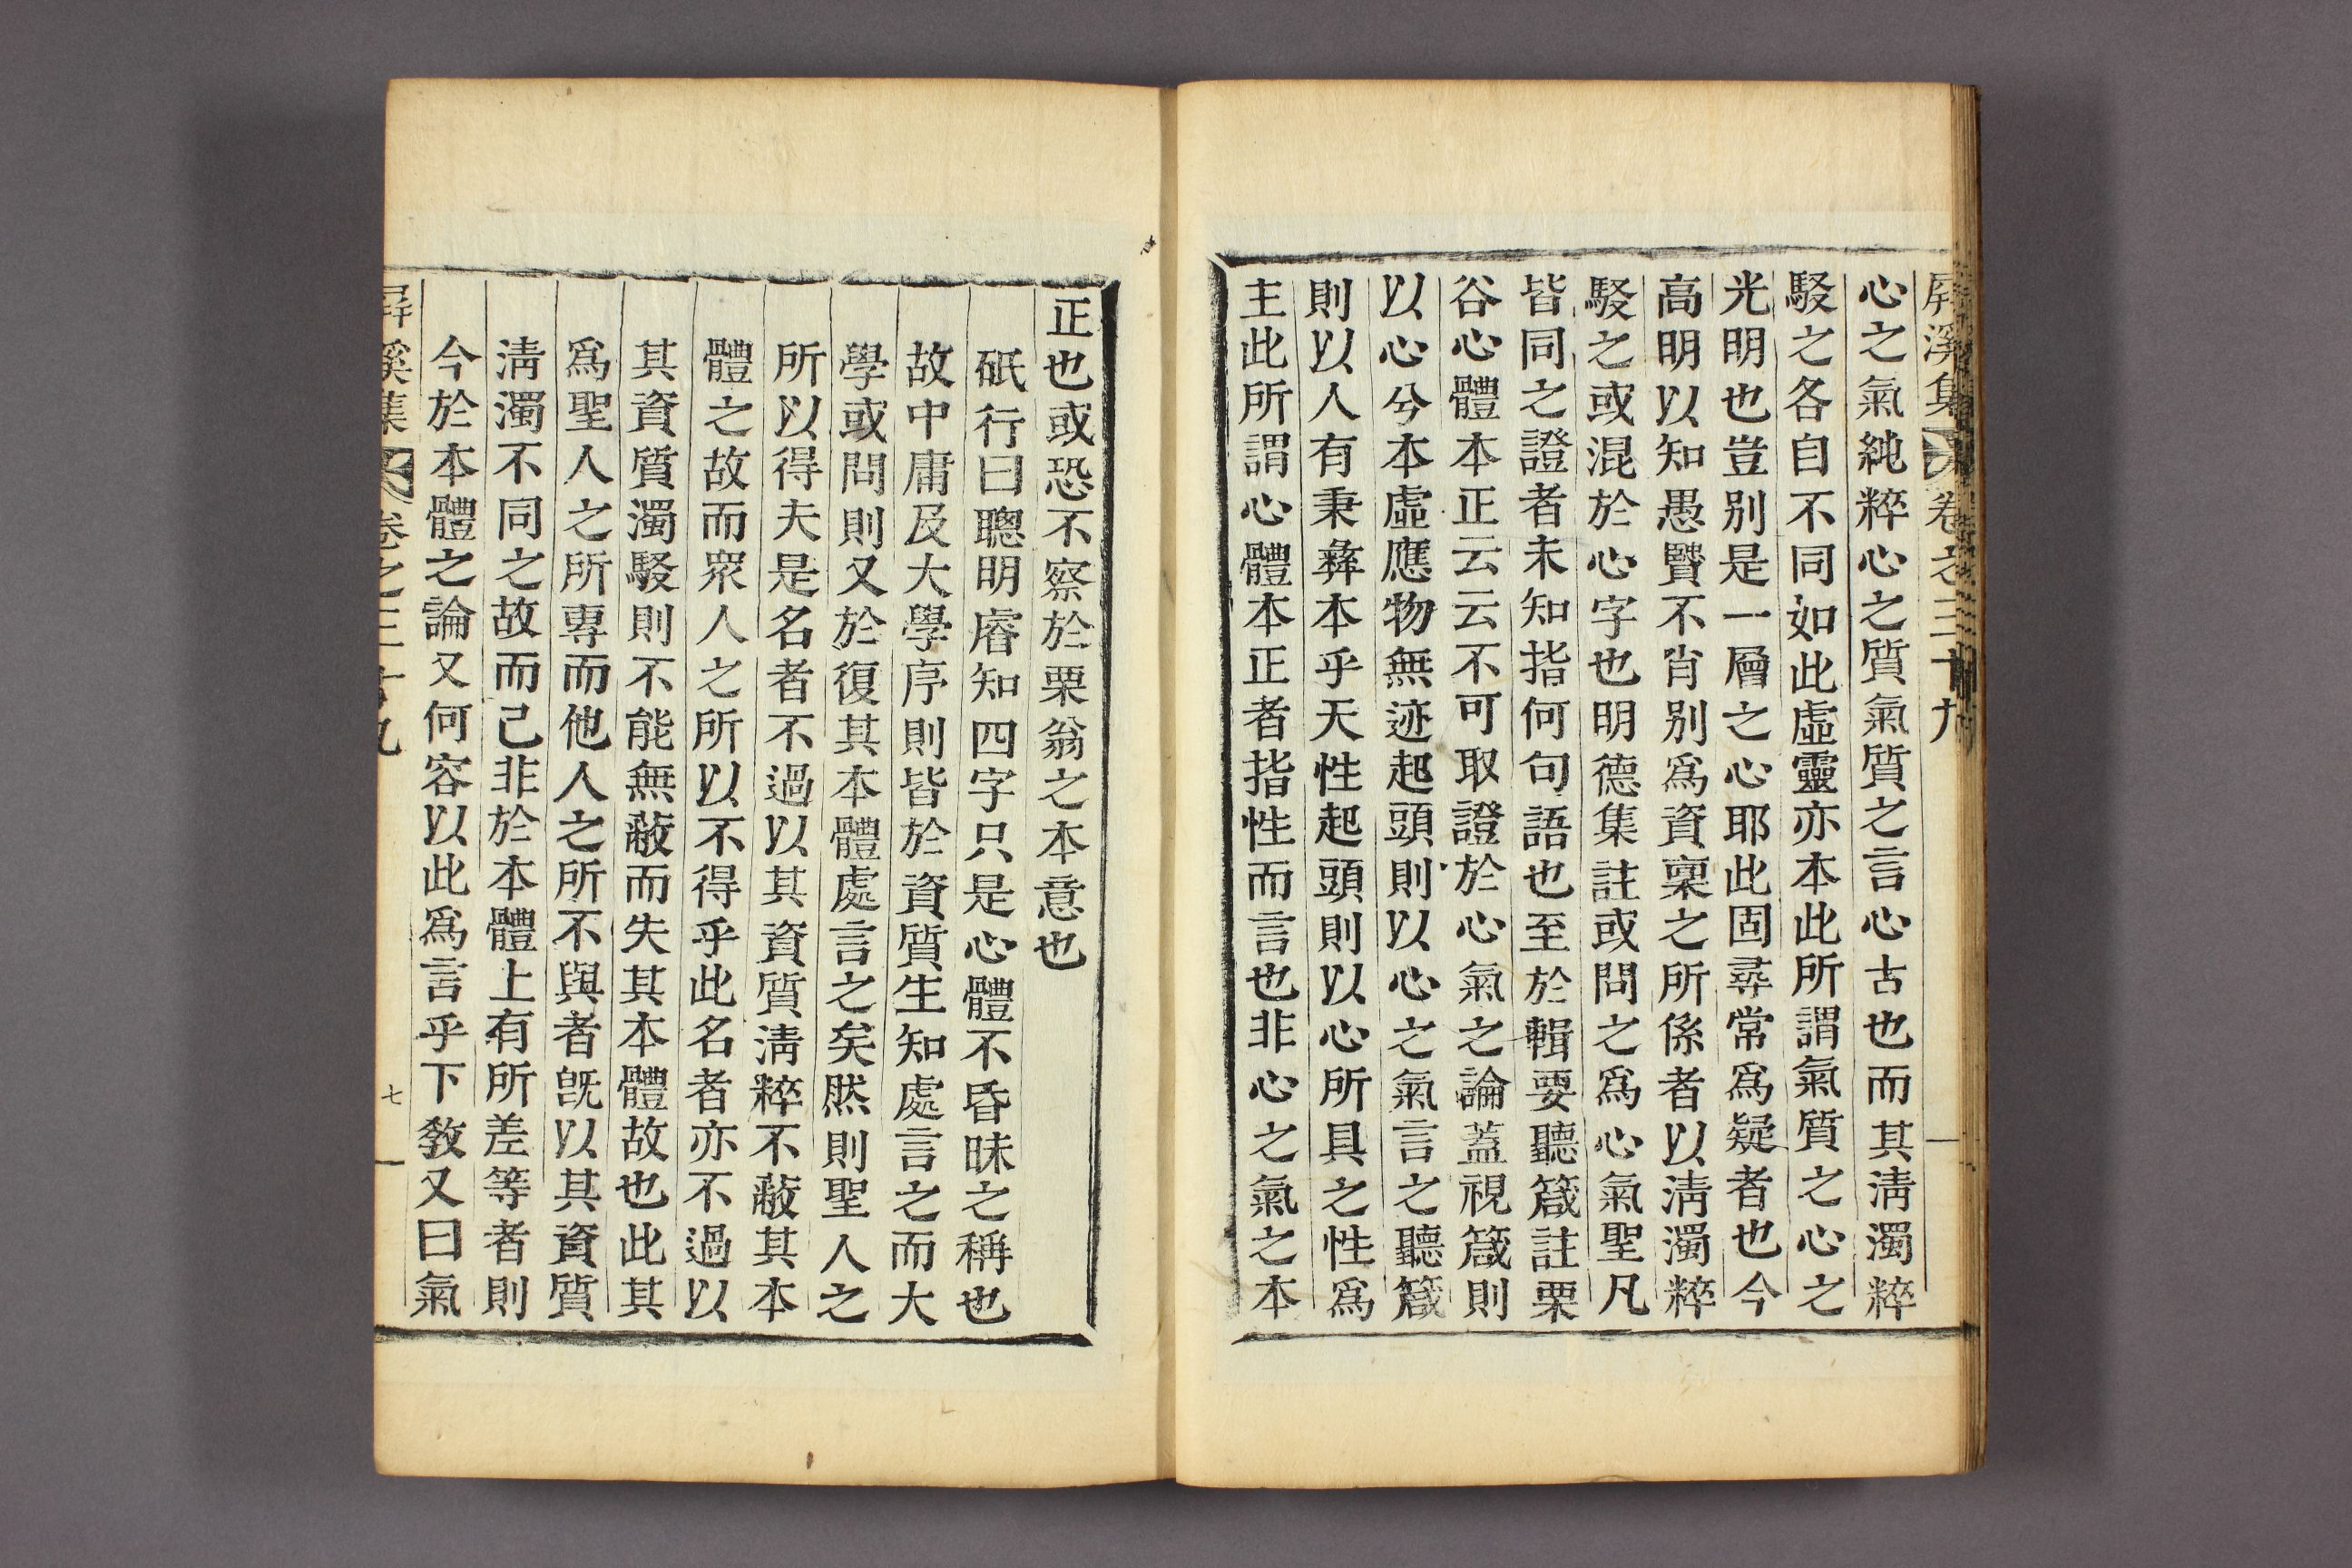 屛溪集 卷之三十九
心之氣純粹心之質氣質之言心古也而其淸濁粹
駁之各自不同如此虛靈亦本此所謂氣質之心之
光明也豈别是一層之心耶此固尋常爲疑者也今
高明以知愚賢不肖别爲資稟之所係者以淸濁粹
駁之或混於心字也明德集註或問之爲心氣聖凡
皆同之證者未知指何句語也至於輯要聽箴註栗
谷心體本正云云不可取證於心氣之論蓋視箴則
以心兮本虛應物無迹起頭則以心之氣言之聽箴
則以人有秉彝本乎天性起頭則以心所具之性爲
主此所謂心體本正者指性而言也非心之氣之本
正也或恐不察於栗翁之本意也
砥行曰聰明睿知四字只是心體不昏昧之稱也
故中庸及大學序則皆於資質生知處言之而大
學或問則又於復其本體處言之矣然則聖人之
所以得夫是名者不過以其資質淸粹不蔽其本
體之故而衆人之所以不得乎此名者亦不過以
其資質濁駁則不能無蔽而失其本體故也此其
爲聖人之所專而他人之所不與者旣以其資質
淸濁不同之故而已非於本體上有所差等者則
今於本體之論又何容以此爲言乎下敎又曰氣
屛溪集 卷之三十九 七